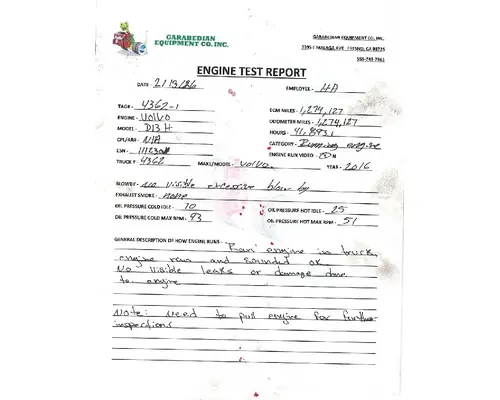 GARABEDIAN
EQUIPMENT CO, INC.
GARABEDIAN EQUIPMENT CO, INC.
ENGINE TEST REPORT
DATE - EMPLOYEE -
TAG# - 4362-1 ECM MILES - 1,274,127
ENGINE - Volvo ODOMETER MILES - 1,274,127
MODEL - D13H HOURS - 41,893.1
CPL/AR# - N/A CATEGORY - Running engine
ESN - ENGINE RUN VIDEO - Y N
TRUCK # 4362 MAKE/MODEL - Volvo YEAR - 2016
BLOWBY - No visible excessive blow by
EXHAUST SMOKE - none
OIL PRESSURE COLD IDLE - 70 OIL PRESSURE HOT IDLE - 25
OIL PRESSURE COLD MAX RPM - 93 OIL PRESSURE HOT MAX RPM - 51
GENERAL DESCRIPTION OF HOW ENGINE RUNS - Ran engine in truck,
engine runs and sounded ok.
No visible leaks or damage done
to engine
Note: need to pull engine for further
inspections